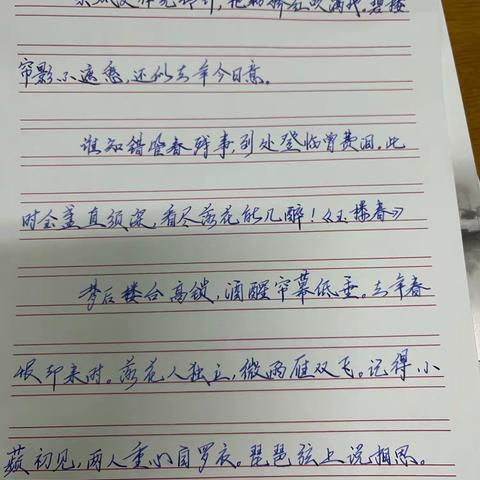 东风又作无情计，艳粉娇红吹满地。碧楼
帘影不遮愁，还似去年今日意。
谁知错管春残事，到处登临曾费泪。此
时金盏直须深，看尽落花能几醉！《玉楼春》
梦后楼台高锁，酒醒帘幕低垂。去年春
恨却来时。落花人独立，微雨燕双飞。记得小
蘋初见，两人重心自罗衣。琵琶弦上说相思。